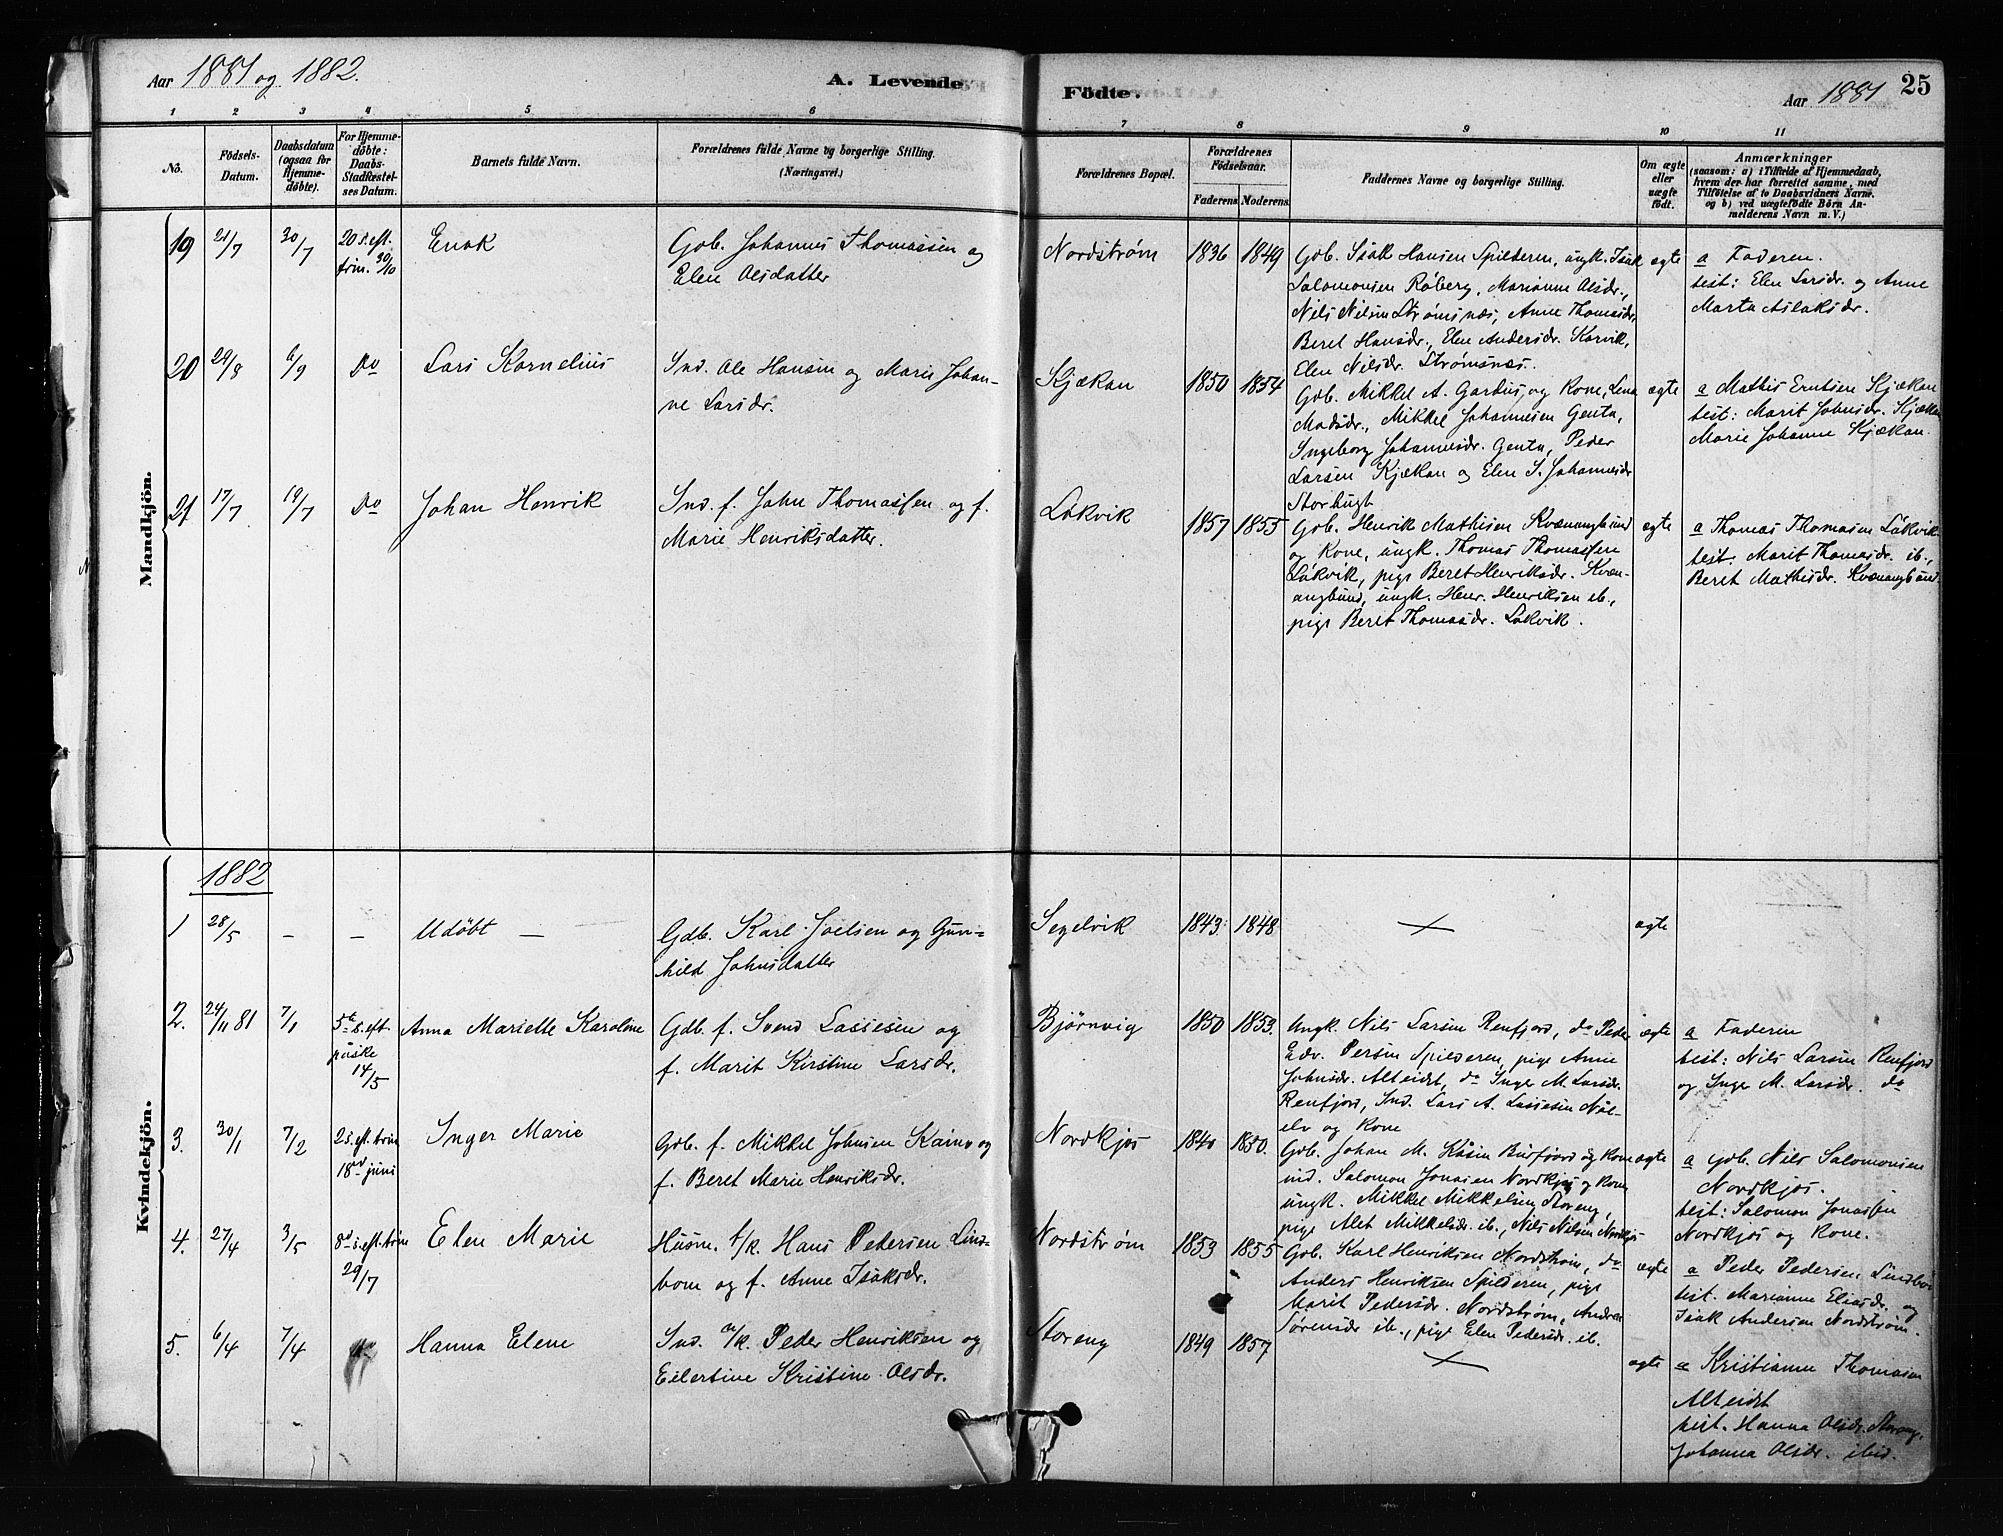 Aar 1881 og 1882.
A. Levende
Födte.
Aar 1881
25
1 2 3 4 5 6
7 8 9 10 11
No.
Födsels-
Datum.
Daabsdatum
(ogsaa for
Hjemme-
döbte).
For Hjemme-
döbte:
Daabs-
Stadfæstel-
ses Datum.
Barnets fulde Navn.
Forældrenes fulde Navne og borgerlige Stilling.
(Næringsvei.)
Forældrenes Bopæl.
Forældrenes
Födselsaar.
Faderens
Moderens
Faddernes Navne og borgerlige Stilling.
Om ægte
eller
uægte
födt.
Anmærkninger
(saasom: a) i Tilfælde af Hjemmedaab,
hvem der har forrettet samme, med
Tilföielse af to Daabsvidners Navne.
og b) ved uægtefödte Börn An-
melderens Navn m. V.)
Mandkjön.
19 21/7 30/7
20 s. eft.
trin. 30/10
Enok
Gdb. Johannes Thomassen og
Elen Olsdatter
Nordstrøm
1836 1849
Gdb. Isak Hansen Spilderen, ungk. Isak
Salomonsen Røberg, Marianne Olsdr.,
Nils Nilsen Strømsnæs, Anne Thomasdr,
Beret Hansdr., Elen Andersdr. Karvik,
Elen Nilsdr. Strømsnæs.
ægte
a Faderen.
test: Elen Larsdr. og Anne
Marta Aslaksdr.
20 29/8 6/9 Do
Lars Kornelius
Ind. Ole Hansen og Marie Johan-
ne Larsdr.
Kjækan
1850 1854
Gdb. Mikkel A. Gardus, og Kone, Lena
Madsdr., Mikkel Johannesen Genta,
Ingeborg Johannesdr. Genta, Peder
Larsen Kjækan og Elen S. Johannesdr
Storbugt
ægte
a Mathis Erntsen Kjækan
test: Marit Johnsdr. Kjækan
Marie Johanne Kjækan.
21 17/7 19/7 Do
Johan Henrik
Ind. f. John Thomassen og f.
Marie Henriksdatter.
Løkvik
1857 1855
Gdb. Henrik Mathisen Kvænangbund
og Kone, ungk. Thomas Thomassen
Løkvik, pige Beret Henriksdr. Kvæn-
angbund, ungk. Henr. Henriksen ib.,
pige Beret Thomasdr. Løkvik.
ægte
a Thomas Thomasen Løkvik
test. Marit Thomasdr. ib.,
Beret Mathisdr. Kvænangbund.
Kvindekjön.
1882
1 28/5 – –
Udöbt –
Gdb. Karl Joelsen og Gun-
hild Johnsdatter
Segelvik
1843. 1848
ægte
2. 24/11 81 7/1
5te s. eft.
påske
14/5
Anna Mariette Karoline
Gdb. f. Svend Lassesen og
f. Marit Kirstine Larsdr.
Bjørnvig
1850 1853.
Ungk. Nils Larsen Renfjord, do Peder
Edv. Persen Spilderen, pige Anne
Johnsdr. Alteidet, do Inger M. Larsdr.
Renfjord, Ind. Lars A. Lassesen
elv og Kone
ægte
a Faderen
test: Nils Larsen Renfjord
og Inger M. Larsdr. do
3. 30/1 7/2
2 s. eft. trin
18de juni
Inger Marie
Gdb. f. Mikkel Johnsen Kaino og
f. Beret Marie Henriksdr.
Nordkjos
1840 1850.
Gdb. Johan M. Kåsen Burfjord og Kone
ind. Salomon Jonasen Nordkjos og Kone
ungk. Mikkel Mikkelsen Storeng,
pige Alet Mikkelsdr. ib., Nils Nilsen Nordkjos
ægte
a Gdb. Nils Salomonsen
Nordkjos.
test: Salomon Jonassen
Nordkjos og Kone.
4. 27/4 3/5
8de s. eft. trin
29/7
Elen Marie
Husm. t/k. Hans Pedersen Lind-
bom og f. Anne Isaksdr.
Nordstrøm
1853 1855
Gdb. Karl Henriksen Nordstrøm, do
Anders Henriksen Spilderen, pige
Marit Pedersdr. Nordstrøm, Andrea
Sørensdr ib., pige Elen Pedersdr. ib.
ægte
a Peder Pedersen Lindbo
test. Marianne Eliasdr. og
Isak Andersen Nordstrøm.
5. 6/4 7/4
Hanna Elene
Ind. n/k. Peder Henriksen og
Eilertine Kristine Olsdr.
Storeng
1849 1857
ægte
a Kristianne Thomasen
Alteidet
test. Hanna Olsdr. Storeng,
Johanna Olsdr. ibid.